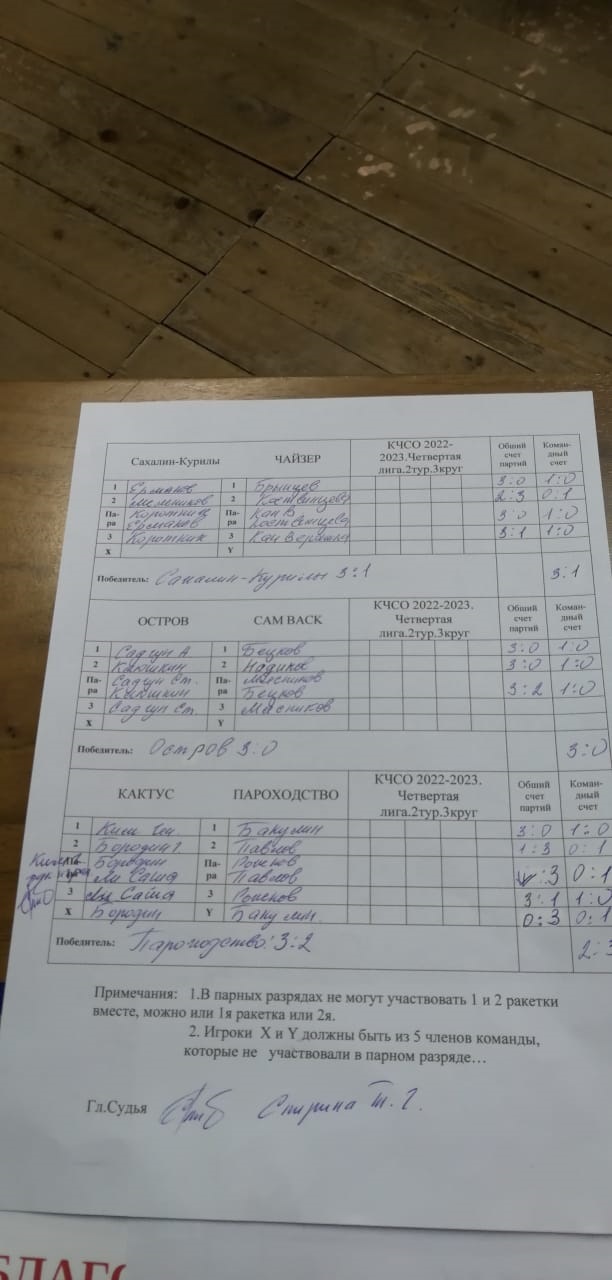 Сахалин-Курилы ЧАЙЗЕР КЧСО 2022- Общий Коман-
2023.Четвертая счет дный
лига.2тур.3круг партий счет
1 Ерманов 1 Брынцев 3:0 1:0
2 Мельников 2 Коствинцева 2:3 0:1
Па- Коротник Па- Кан В 3:0 1:0
ра Ерманов ра Костенцева
3 Коротник 3 Кан 3:1 1:0
X Y
Победитель: Сахалин-Курилы 3:1 3:1
ОСТРОВ САМ ВАСК КЧСО 2022-2023. Общий Коман-
Четвертая счет дный
лига.2тур.3круг партий счет
1 Садчун А 1 Бецков 3:0 1:0
2 Кикшкин 2 3:0 1:0
Па- Садчун Ст. Па- Мясников 3:2 1:0
ра Кикшкин ра Бецков
3 Садчун Ст. 3 Масников
X Y
Победитель: Остров 3:0 3:0
КАКТУС ПАРОХОДСТВО КЧСО 2022-2023. Общий Коман-
Четвертая счет дный
лига.2тур.3круг партий счет
1 Ким Ен. 1 Бакулин 3:0 1:0
2 Бородин 2 Павлов 1:3 0:1
Па- Бородин Па- Роменов :3 0:1
ра Ли Саша ра Павлов
3 Ли Саша 3 Роменов 3:1 1:0
X Бородин Y Бакулин 0:3 0:1
Победитель: Пароходство: 3:2 2:3
Примечания: 1.В парных разрядах не могут участвовать 1 и 2 ракетки
вместе, можно или 1я ракетка или 2я.
2. Игроки X и Y должны быть из 5 членов команды,
которые не участвовали в парном разряде…
Гл.Судья Спирина Т. Г.